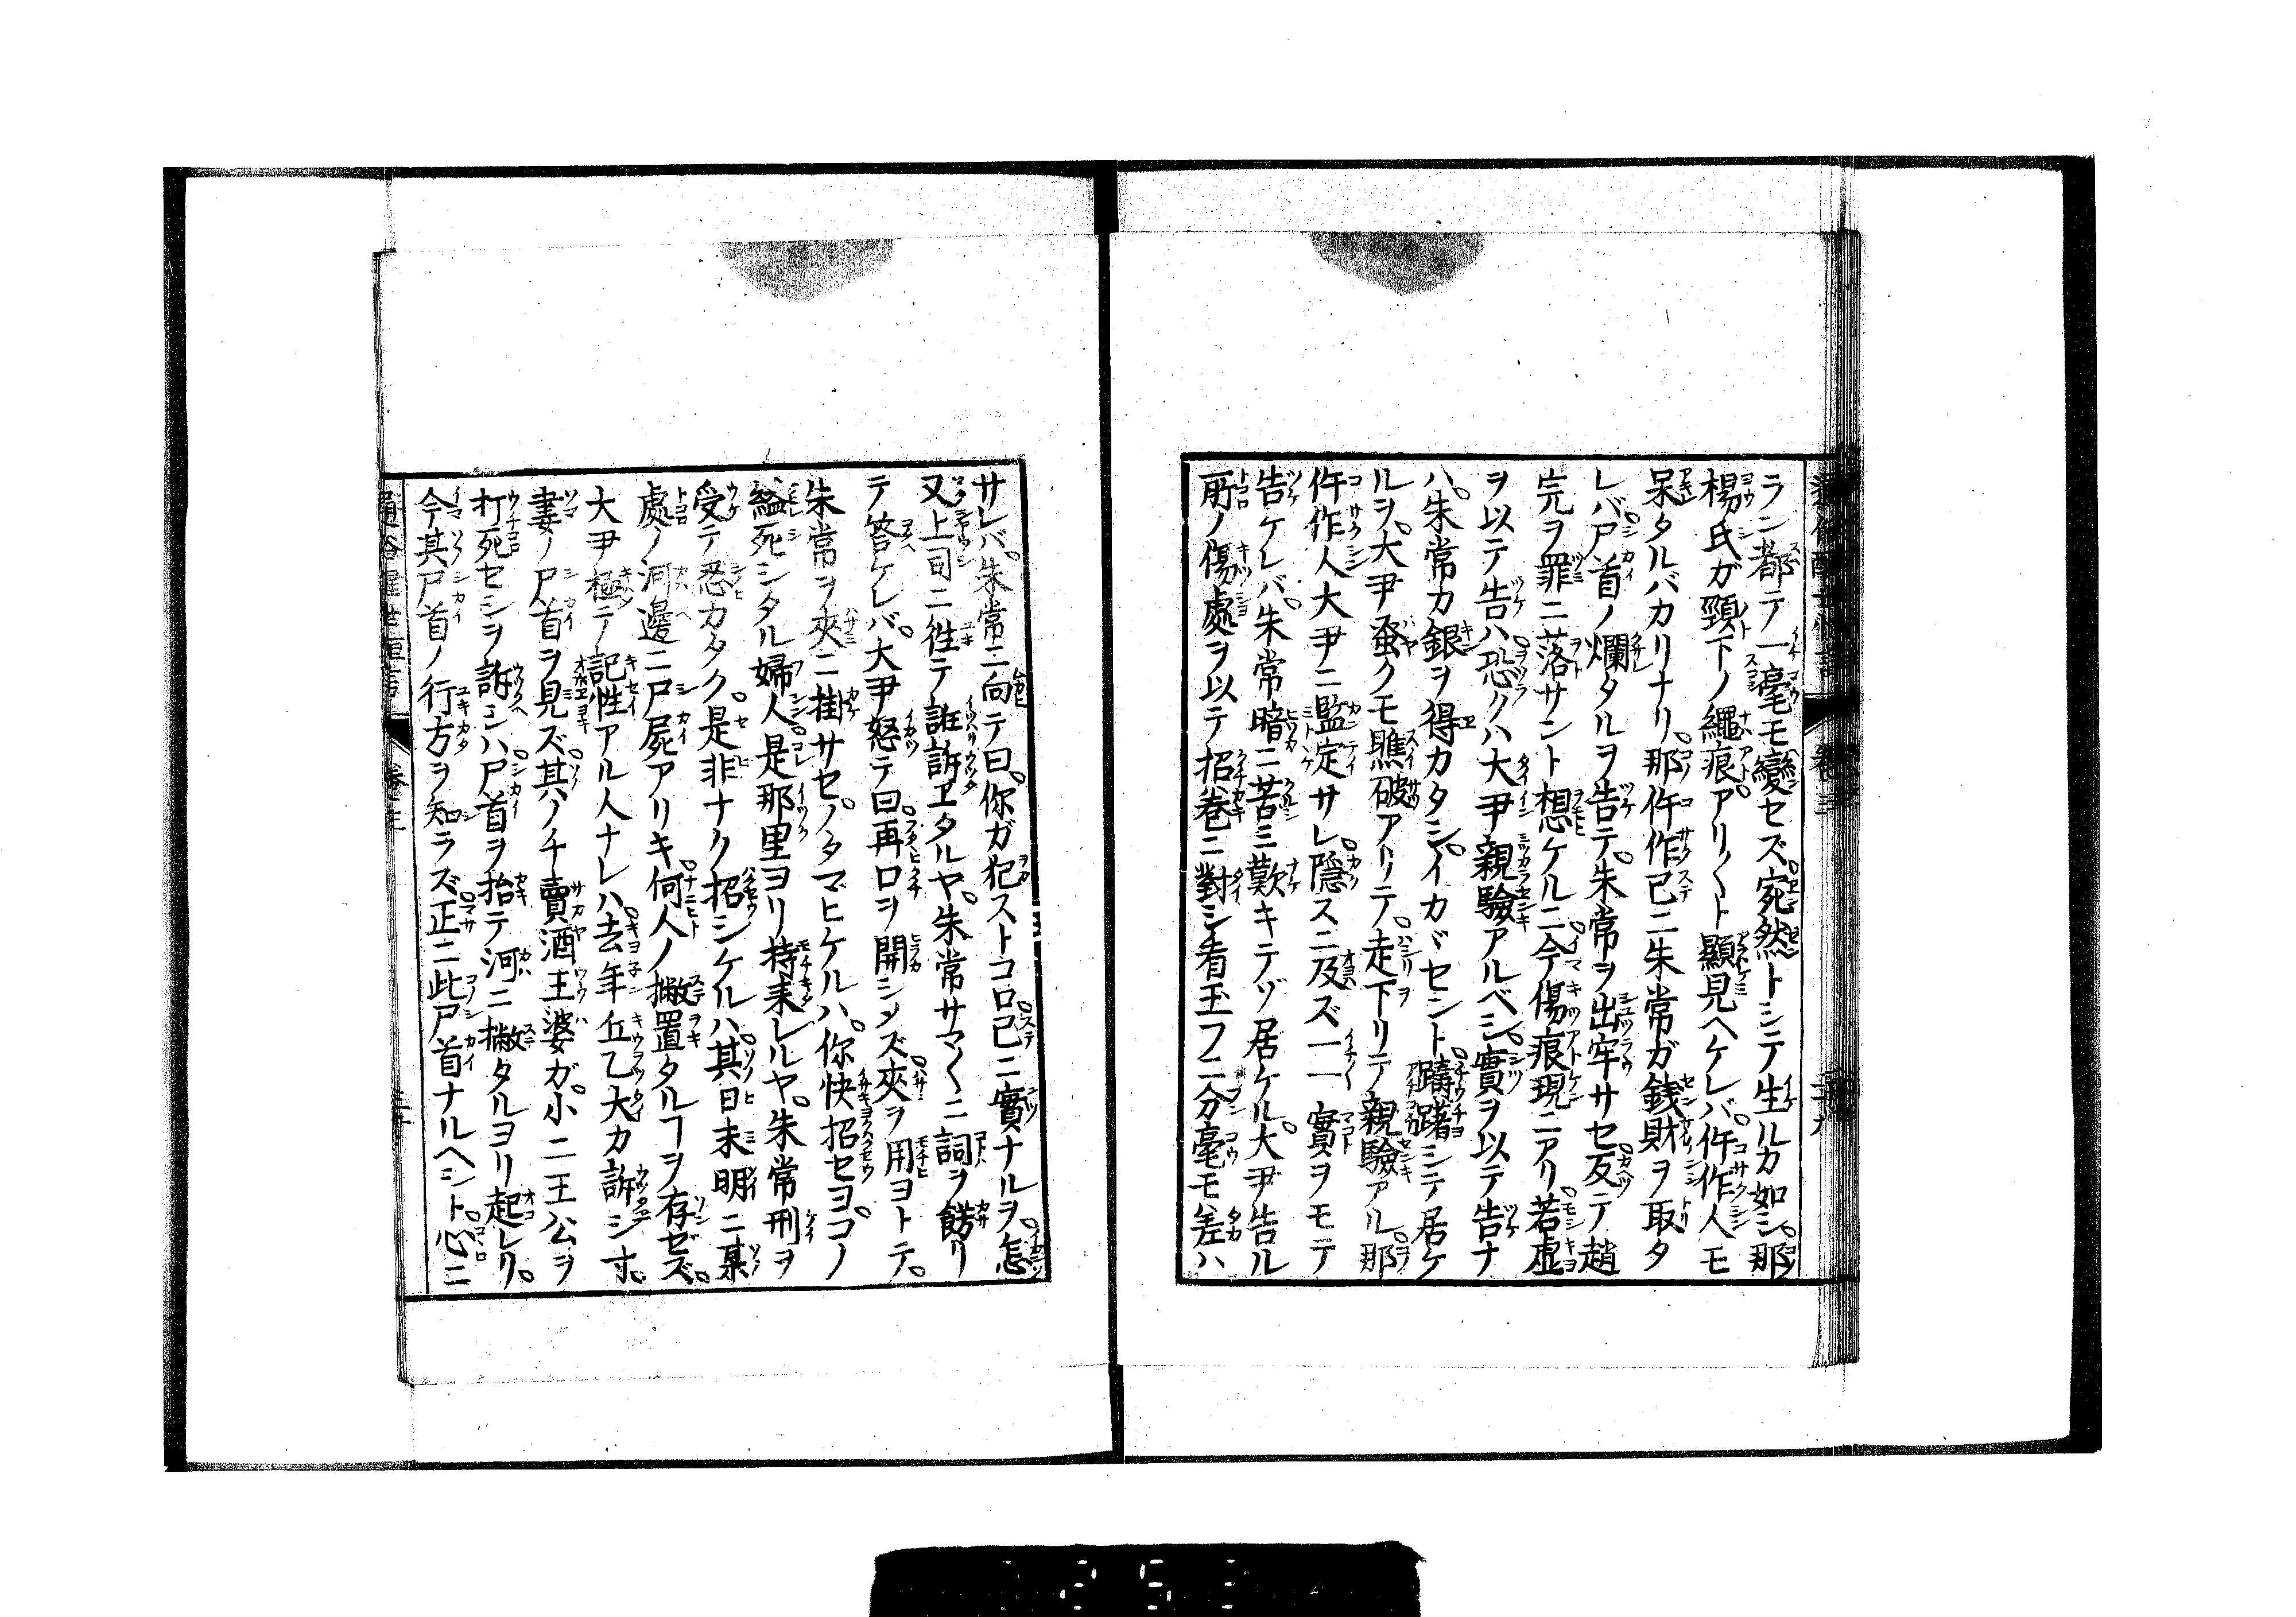 ラン都テ一毫モ變セズ宛然トシテ生ルカ如シ那
楊氏ガ頸下ノ繩痕アリ〱ト顯見ヘケレバ仵作人モ
呆タルバカリナリ那仵作已ニ朱常ガ銭財ヲ取タ
レバ尸首ノ爛タルヲ告テ朱常ヲ出牢サセ反テ趙
完ヲ罪ニ落サント想ケルニ今傷痕現ニアリ若虚
ヲ以テ告ハ恐クハ大尹親驗アルベシ實ヲ以テ告ナ
ハ朱常カ銀ヲ得カタシイカヾセント躊躇シテ居ケ
ルヲ大尹蚤クモ瞧破アトリテ走下リテ親驗アル那
仵作人大尹ニ監定サレ隠スニ及ズ一一實ヲモテ
告ケレバ朱常暗ニ苦ミ歎キテゾ居ケル大尹告ル
所ノ傷處ヲ以テ招卷ニ對シ看玉フニ分毫モ差ハ
サレバ朱常ニ向テ曰你ガ犯ストコロ已ニ實ナルヲ怎
又上司ニ徃テ誑訴ヱタルヤ朱常サマ〱ニ詞ヲ餝リ
テ答ケレバ大尹怒テ曰再口ヲ開シメズ夾ヲ用ヨトテ
朱常ヲ夾ニ掛サセノタマヒケルハ你快招セヨコノ
縊死シタル婦人是那里ヨリ持来レルヤ朱常刑ヲ
受テ忍カタク是非ナク招シケルハ其日未明ニ某
處ノ河邊ニ尸屍アリキ何人ノ撇置タルヿヲ存ゼズ
大尹極テ記性アル人ナレハ去年丘乙大カ訴シ寸
妻ノ尸首ヲ見ズ其ノチ賣酒王婆ガ小二王公ヲ
打死セシヲ訴ヱシハ尸首ヲ抬テ河ニ撇タルヨリ起レリ
今其尸首ノ行方ヲ知ラズ正ニ此尸首ナルヘシト心ニ